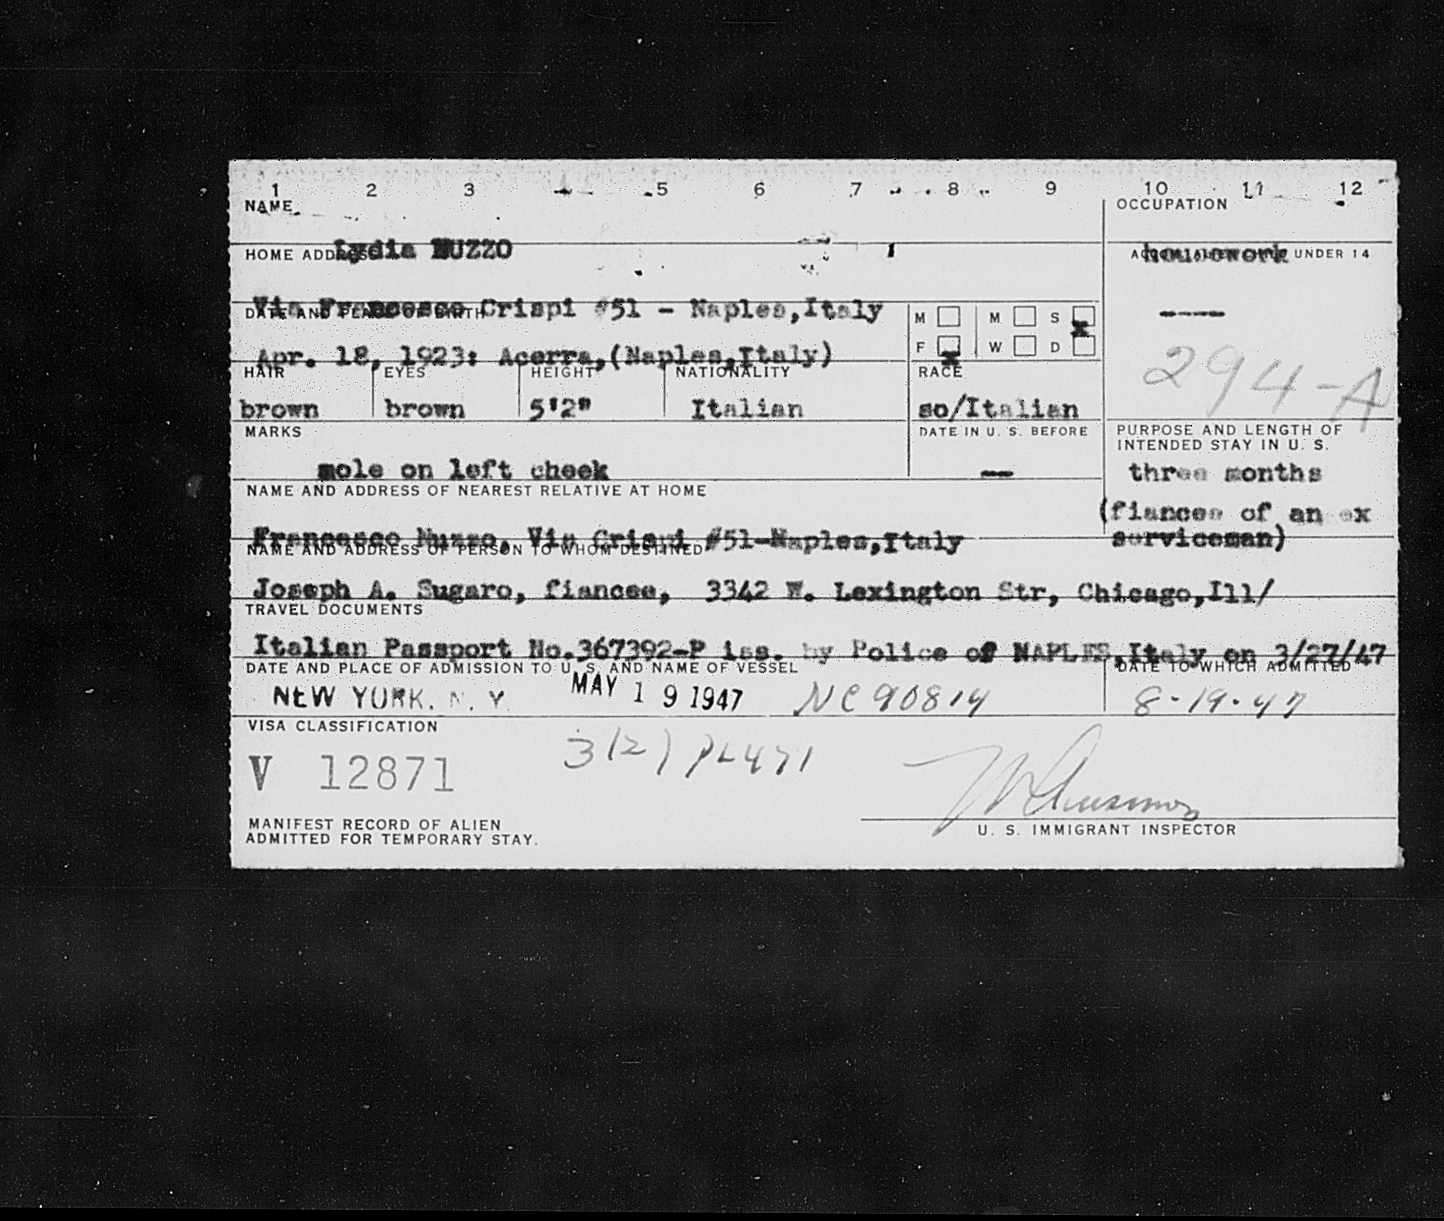 1 2 3 4 5 6 7 8 9 10 11 12
NAME OCCUPATION
Lydia NUZZO housework
HOME ADDRESS ACCOMPANIED BY UNDER 14
Via Francesco Crispi #51 - Naples,Italy ----
DATE AND PLACE OF BIRTH M M S x
Apr. 18, 1923: Acerra,(Naples,Italy) F x W D
294-A
HAIR EYES HEIGHT NATIONALITY RACE
brown brown 5'2" Italian so/Italian
MARKS DATE IN U. S. BEFORE PURPOSE AND LENGTH OF
INTENDED STAY IN U. S.
mole on left cheek -- three months
NAME AND ADDRESS OF NEAREST RELATIVE AT HOME
(fiancee of an ex
Francesco Nuzzo, Via Crispi #51-Naples,Italy serviceman)
NAME AND ADDRESS OF PERSON TO WHOM DESTINED
Joseph A. Sugaro, fiancee, 3342 W. Lexington Str, Chicago,Ill/
TRAVEL DOCUMENTS
Italian Passport No.367392-P iss. by Police of NAPLES,Italy on 3/27/47
DATE AND PLACE OF ADMISSION TO U. S. AND NAME OF VESSEL DATE TO WHICH ADMITTED
NEW YORK, N. Y. MAY 19 1947 NC 90814 8-19-47
VISA CLASSIFICATION
V 12871 3(2)
MANIFEST RECORD OF ALIEN
ADMITTED FOR TEMPORARY STAY.
U. S. IMMIGRANT INSPECTOR